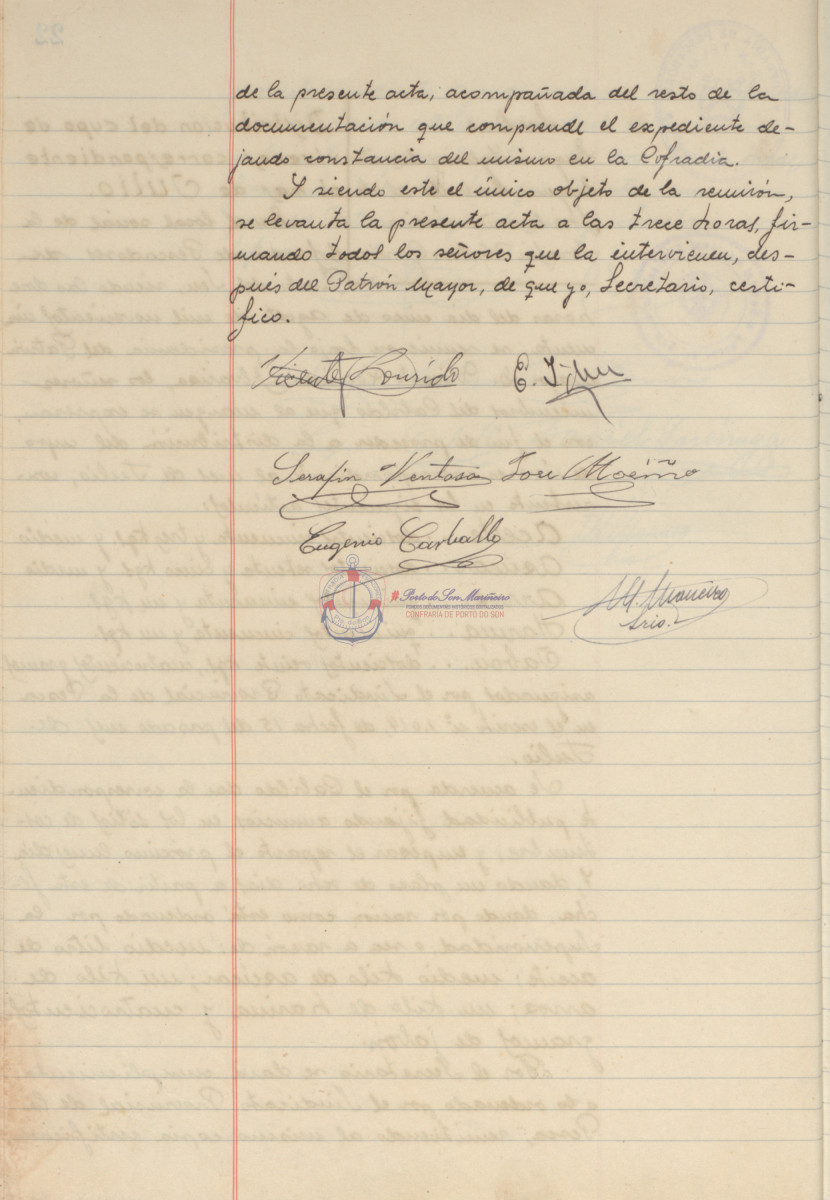 de la presente acta, acompañada del resto de la
documentación que comprende el expediente de-
jando constancia del mismo en la Cofradía.
Y siendo este el único objeto de la reunión,
se levanta la presente acta a las trece horas, fir-
mando todos los señores que la intervienen, des-
pués del Patrón Mayor, de que yo, Secretario, certi-
fico.
Vicente Lourido E.
Serafin Ventosa Jose Moñino
Eugenio Carballo
Porto do Son Mariñeiro
FONDOS DOCUMENTAIS HISTÓRICOS DIXITALIZADOS
CONFRARÍA DE PORTO DO SON
M. Maneiro
Srio.